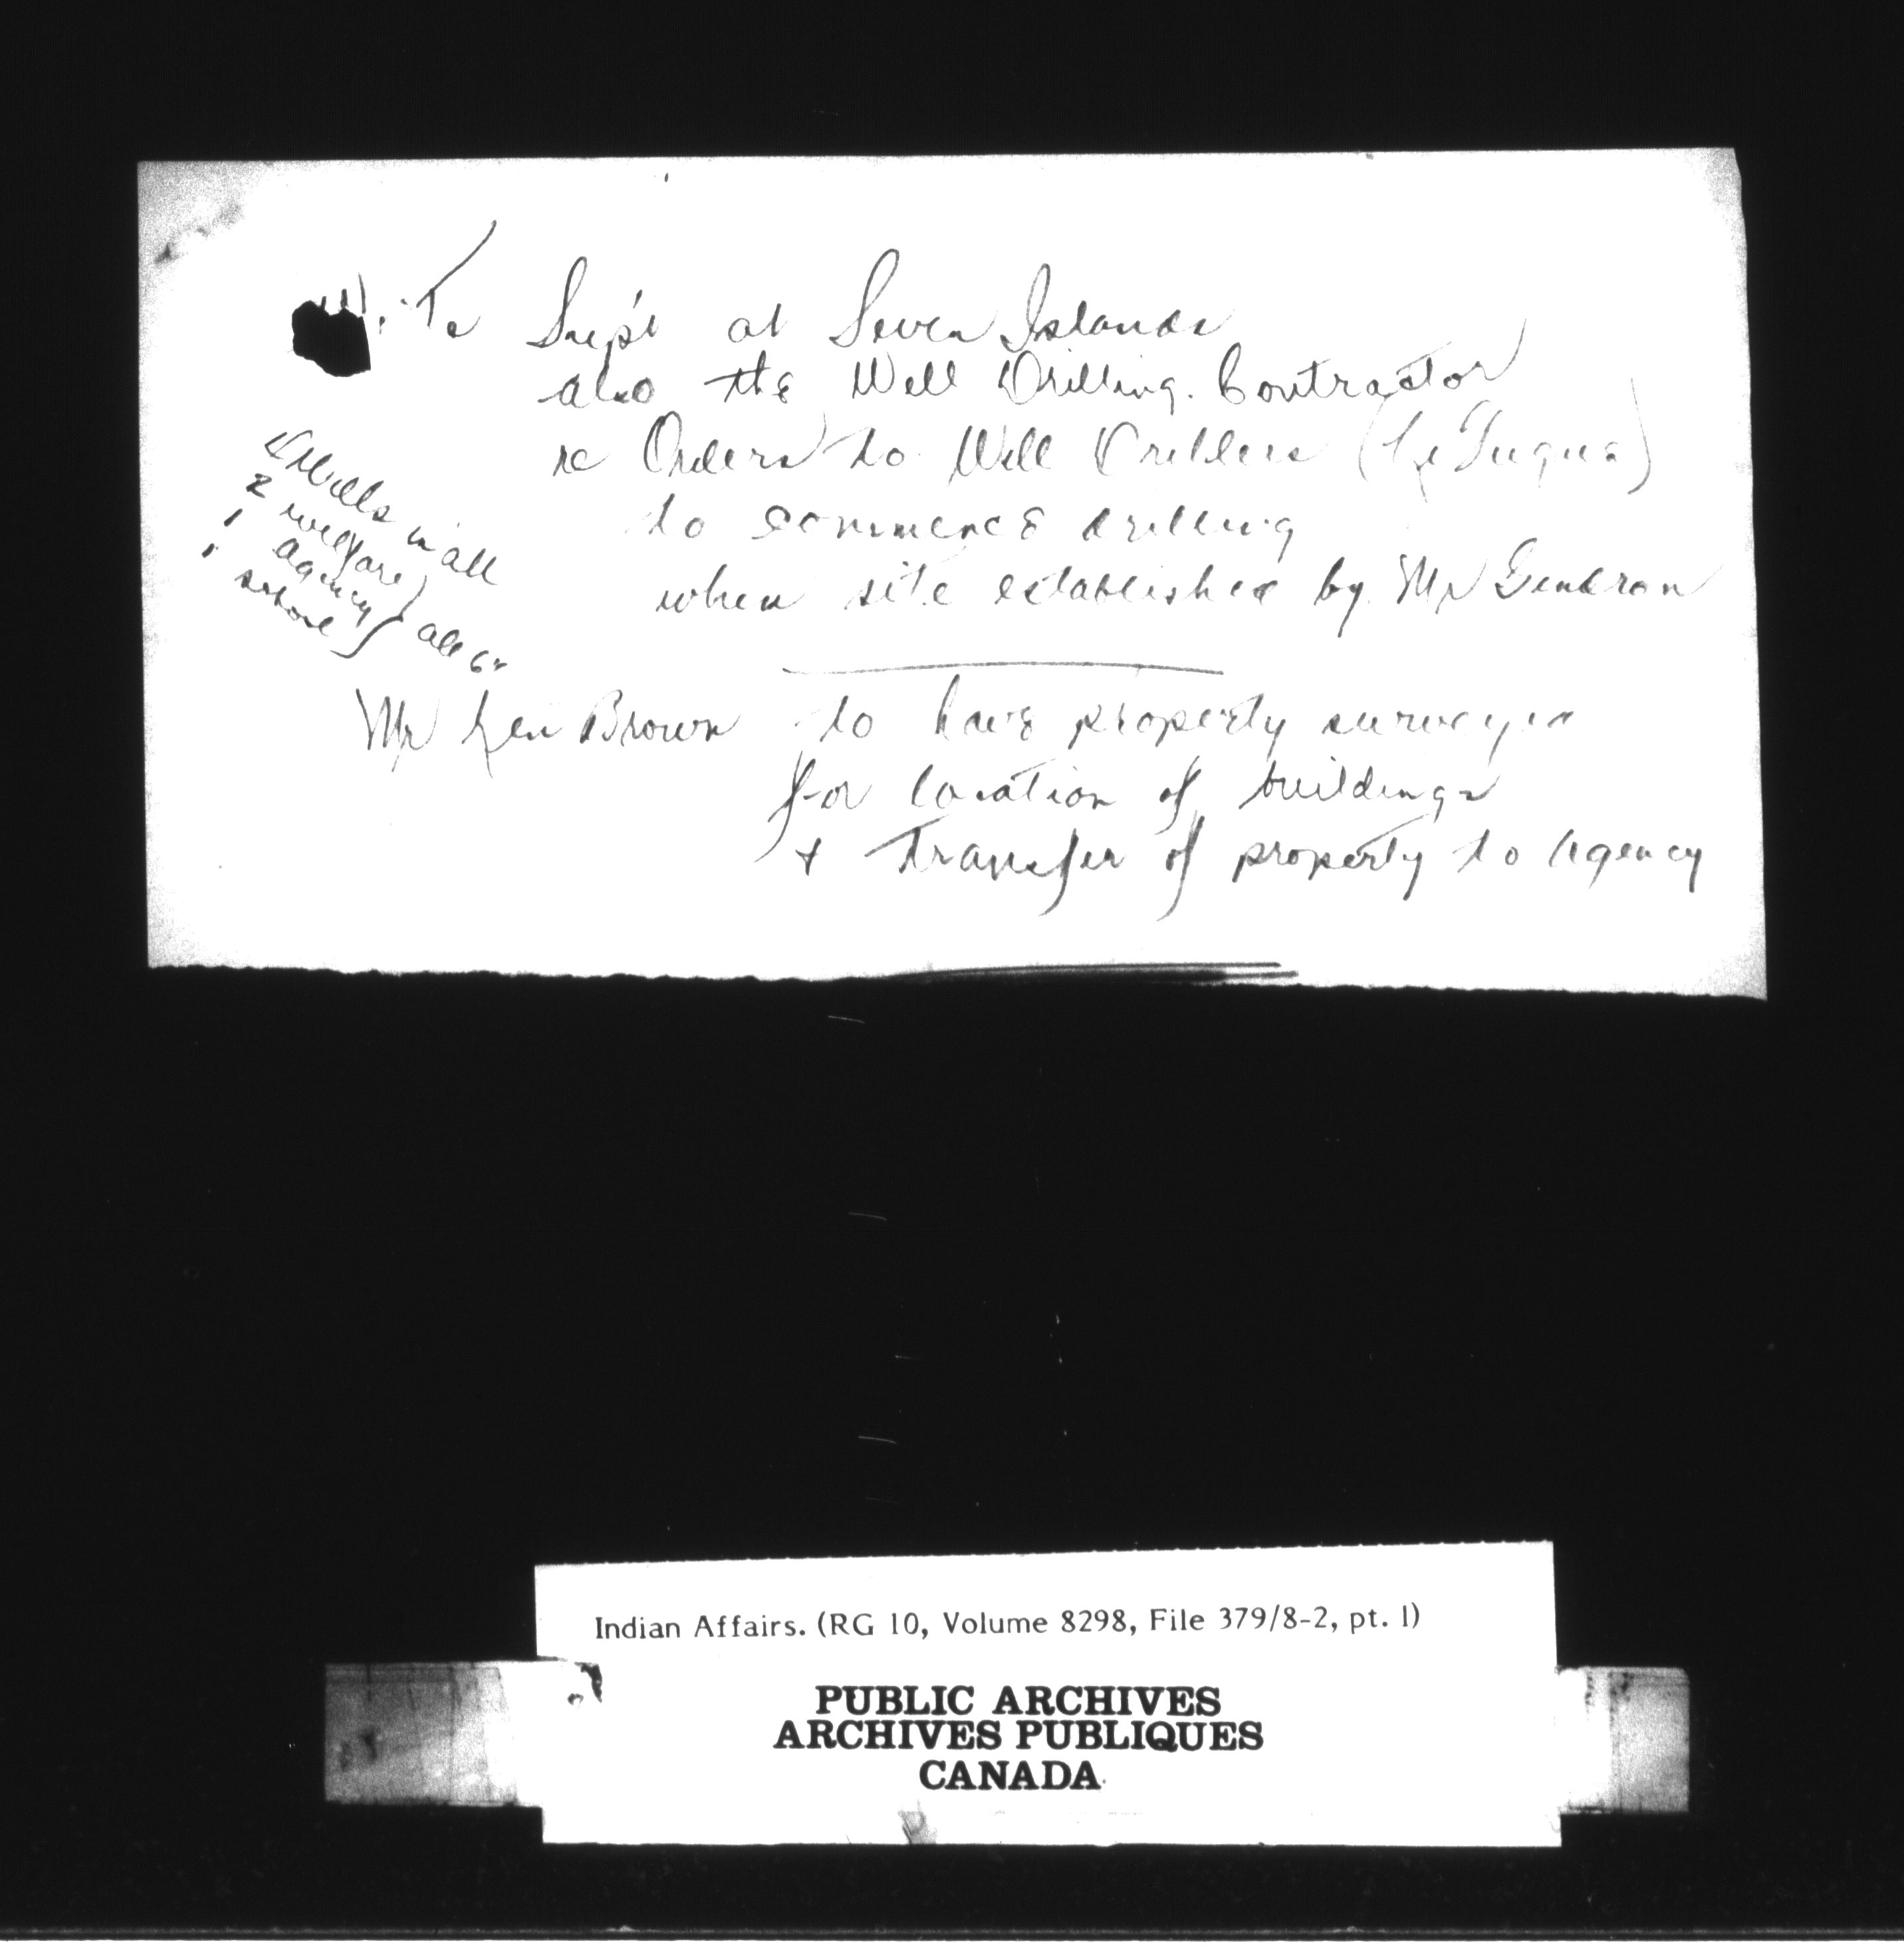 To Sup't at Seven Islands
also the Well Drilling Contractor
re Orders to Well Drillers (La Tuque)
to commence drilling
when site established by Mr Gendron
Wells in all
2 welfare
1 agency
1 school
all 6"
Mr Ken Brown to have property surveyed
for location of buildings
+ transfer of property to Agency
Indian Affairs. (RG 10, Volume 8298, File 379/8-2, pt. 1)
PUBLIC ARCHIVES
ARCHIVES PUBLIQUES
CANADA